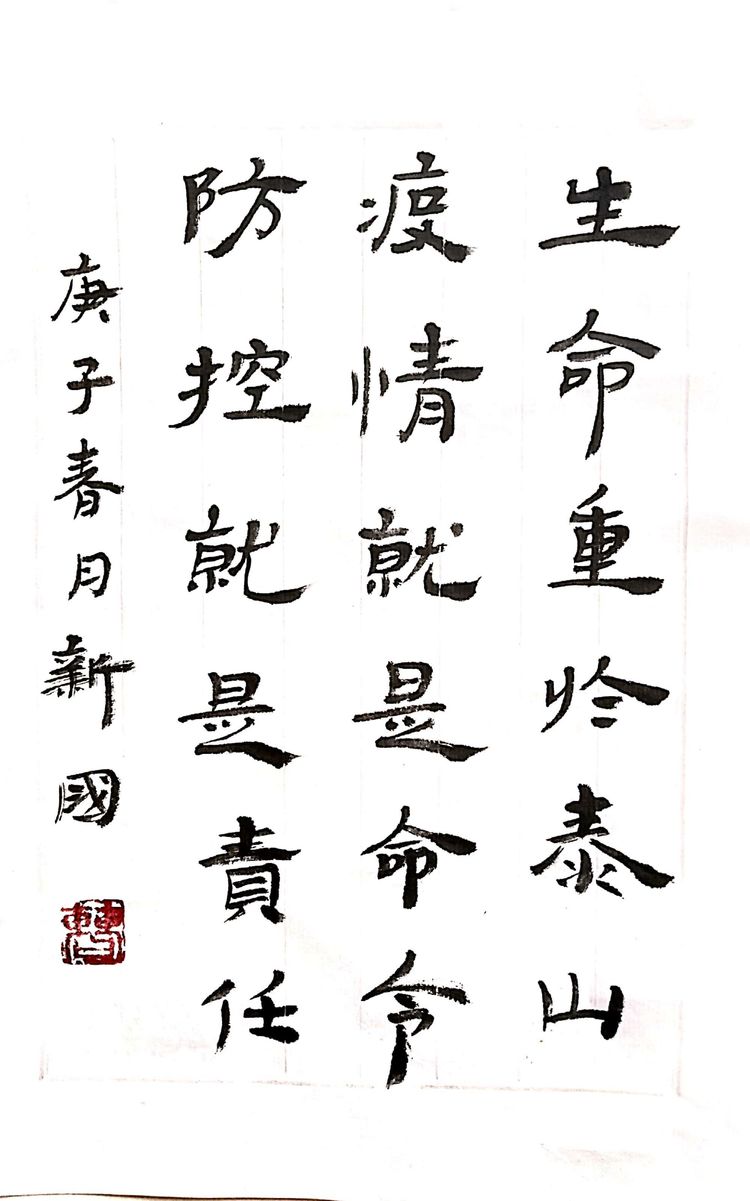 生命重於泰山
疫情就是命令
防控就是責任
庚子春月新國